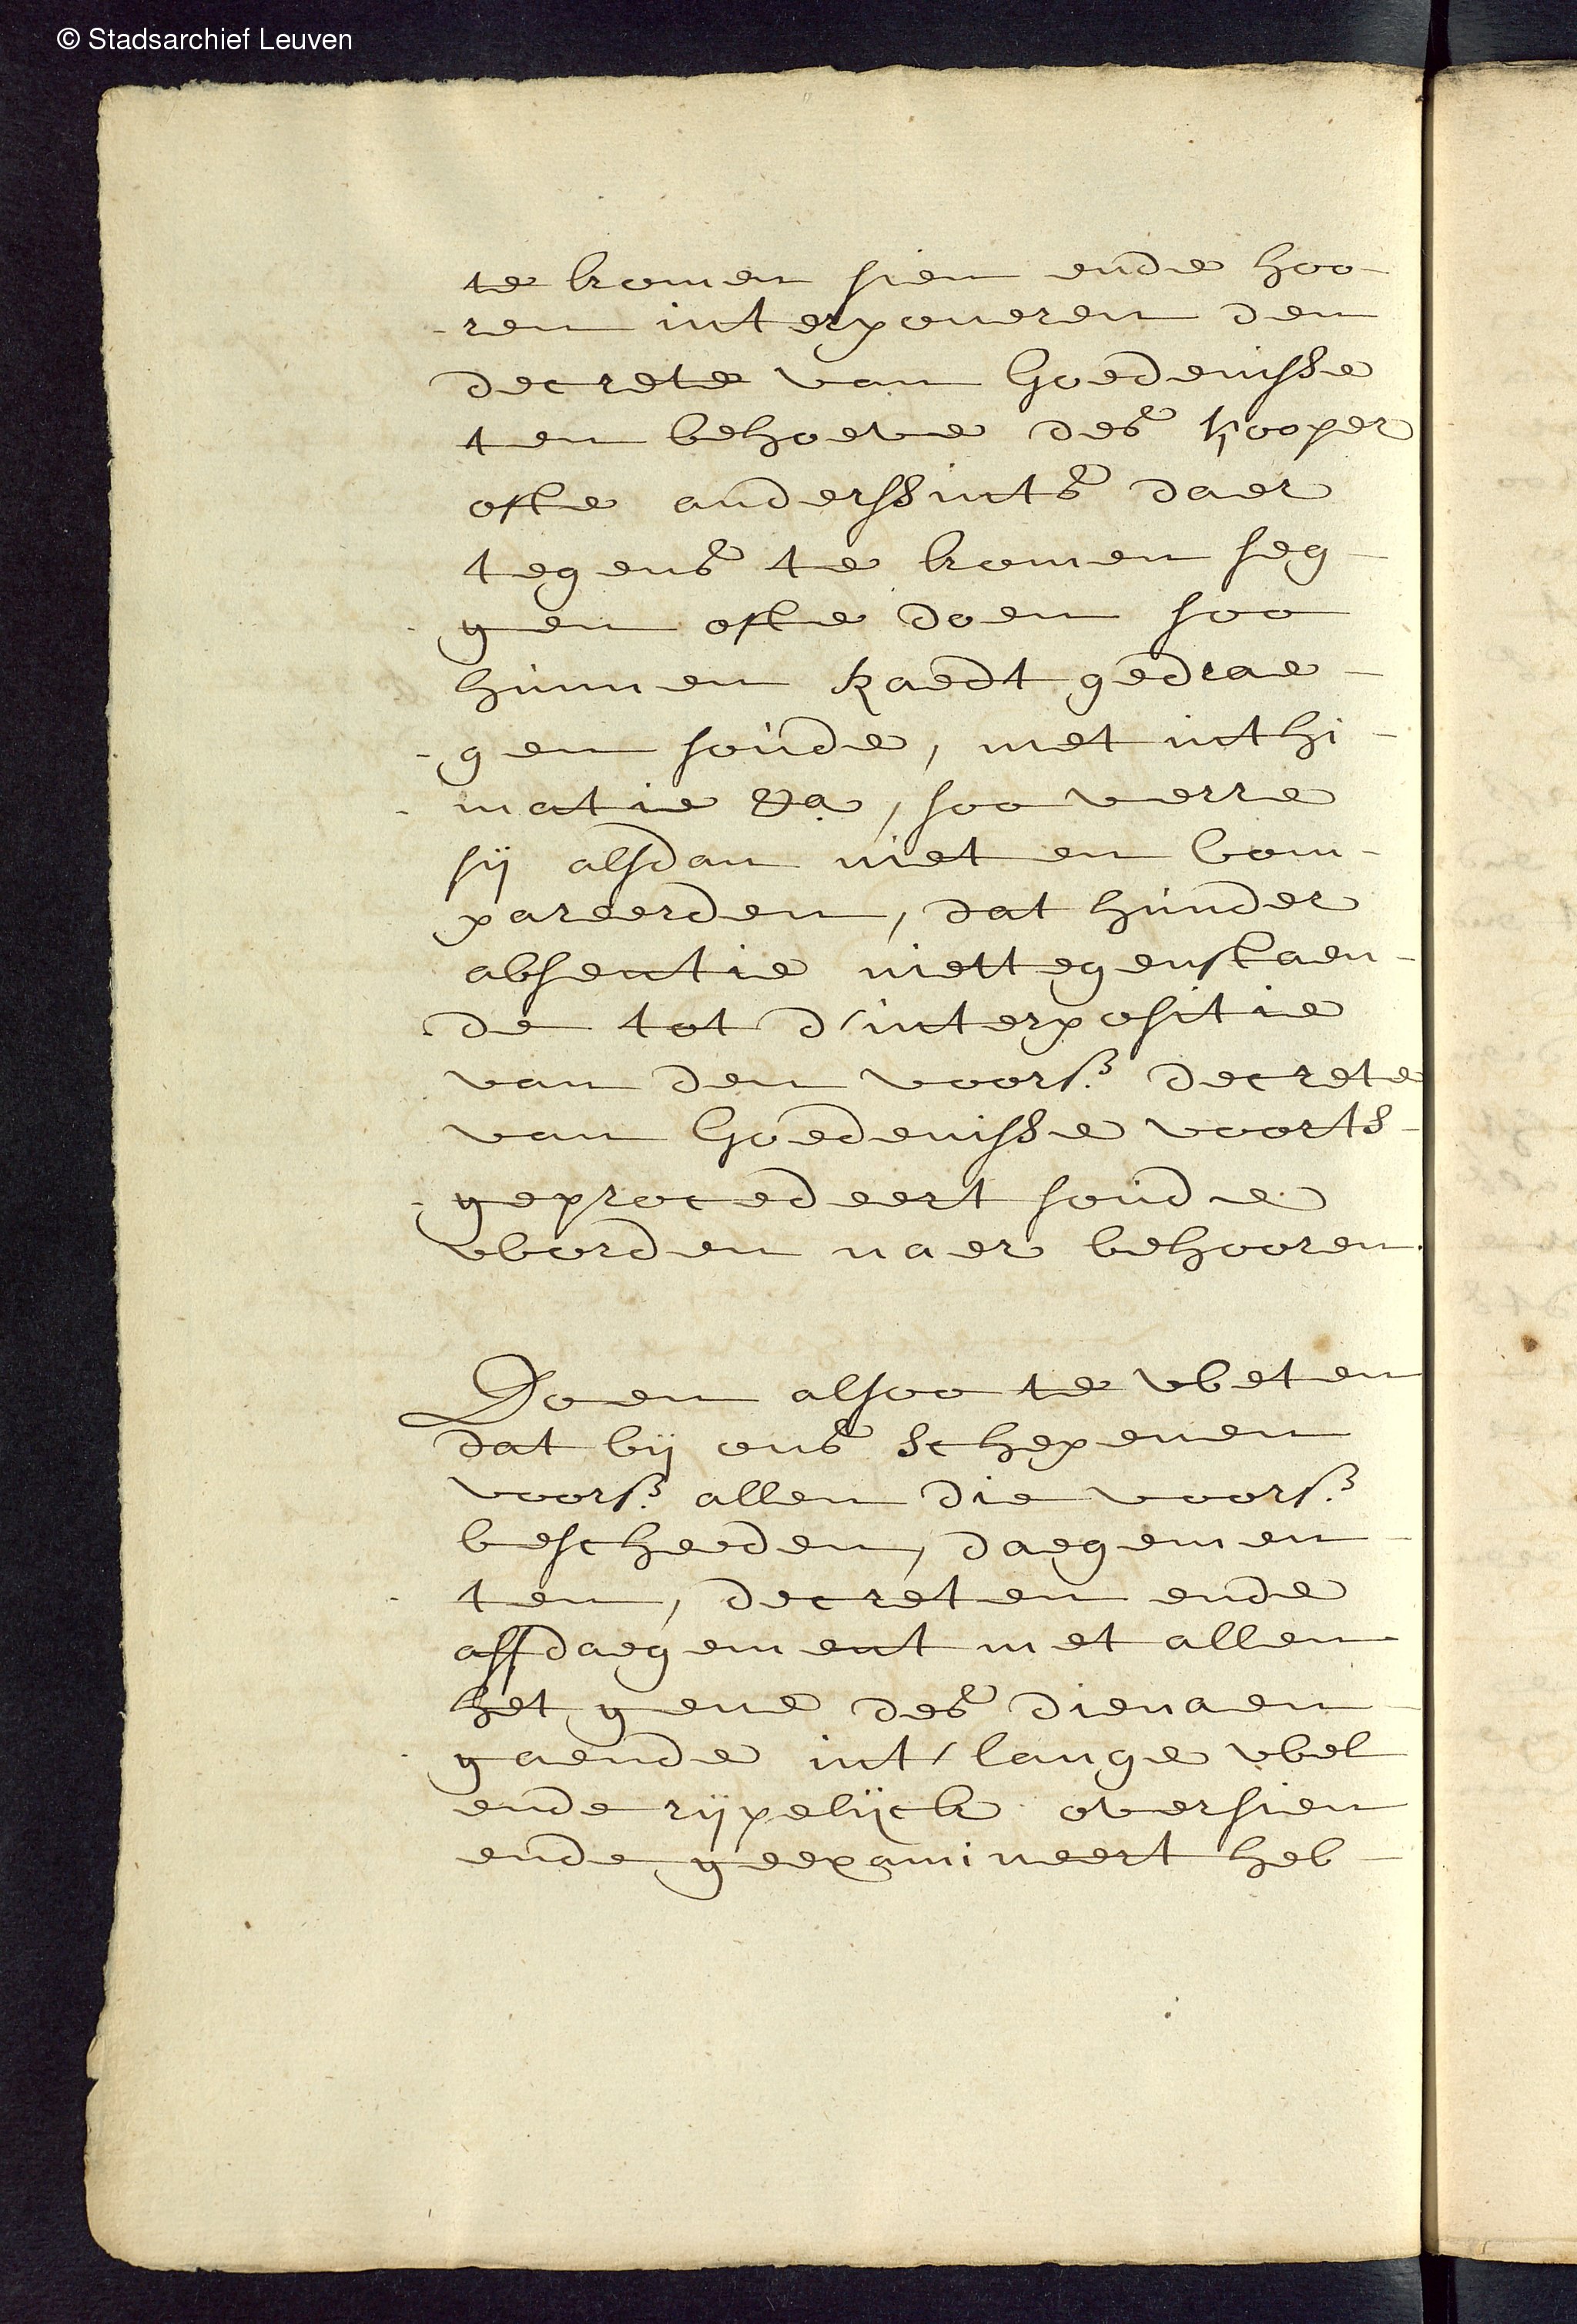 © Stadsarchief Leuven
te komen sien ende hoo-
-ren interponeren den
decrete van Goedenisse
ten behoeve des kooper
ofte anderssints daer
tegens te komen seg-
gen ofte doen soo
hunnen Raedt gedrae-
-gen soude, met inthi-
-matie &a, soo verre
sij alsdan niet en Com-
pareerden, dat hunder
absentie niettegenstaen-
de tot d'interpositie
van den voors. decrete
van Goedenisse voorts-
-geprocedeert soude
worden naer behooren.
Doen alsoo te weten
dat bij ons Schepenen
voors. allen die voors.
bescheeden, daegemen-
-ten, decreten ende
affdaegement met allen
het gene des dienaen-
-gaende int' lange wel
ende rijpelijck oversien
ende geexamineert heb-